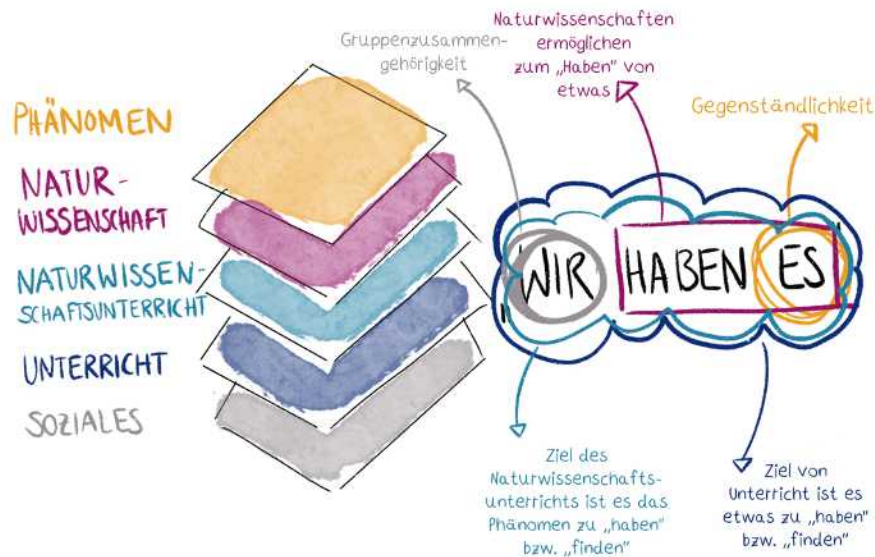 PHÄNOMEN
NATUR-
WISSENSCHAFT
NATURWISSEN-
SCHAFTSUNTERRICHT
UNTERRICHT
SOZIALES
Gruppenzusammen-
gehörigkeit
Naturwissenschaften
ermöglichen
zum „Haben" von
etwas
Gegenständlichkeit
WIR HABEN ES
Ziel des
Naturwissenschafts-
unterrichts ist es das
Phänomen zu „haben"
bzw. „finden"
Ziel von
Unterricht ist es
etwas zu „haben"
bzw. „finden"